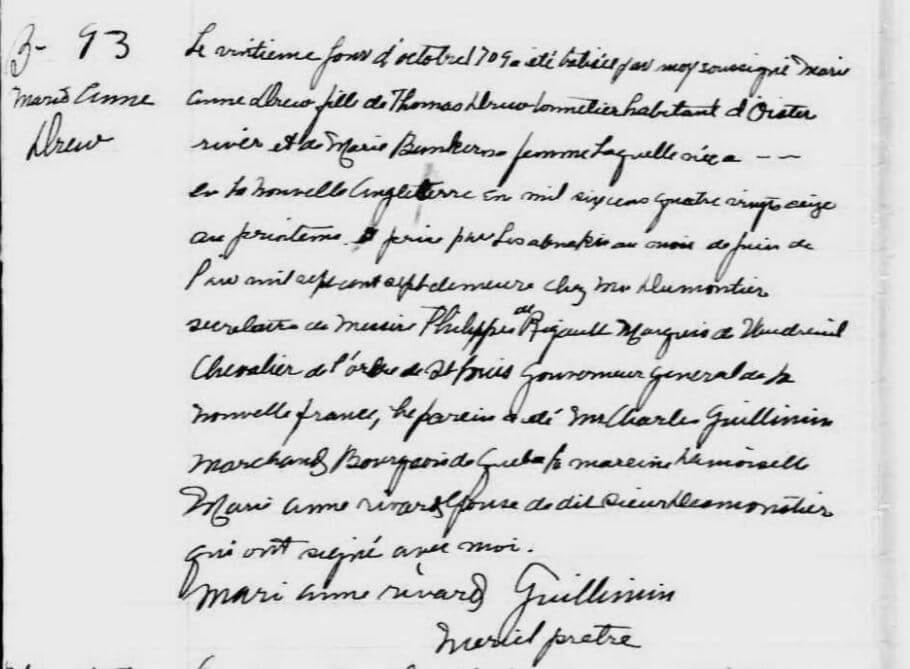 B- 93
Marie Anne
Drew
Le vintieme Jour d'octobre 1709 a été batisée par moy soussigné Marie
anne Drew fille de Thomas Drew tonnelier habitant d'Oister
river et de Marie Bunker sa femme Laquelle née a - -
en la nouvelle Angleterre en mil six cens quatre vingts seize
au printems prise par Les abnakis au mois de juin de
l'an mil sept cent sept demeure chez Mr Dumontier
secretaire de Messire Philippe de Rigault Marquis de Vaudreuil
Chevalier de l'ordre de St Louis Gouverneur General de la
nouvelle france, le parein a été Mr Charles Guillimin
Marchand Bourgeois de Quebec la mareine Damoiselle
Marie anne rivard Epouse de dit sieur Desmonstier
qui ont signé avec moi.
Mari anne rivard Guillimin
Meriel pretre